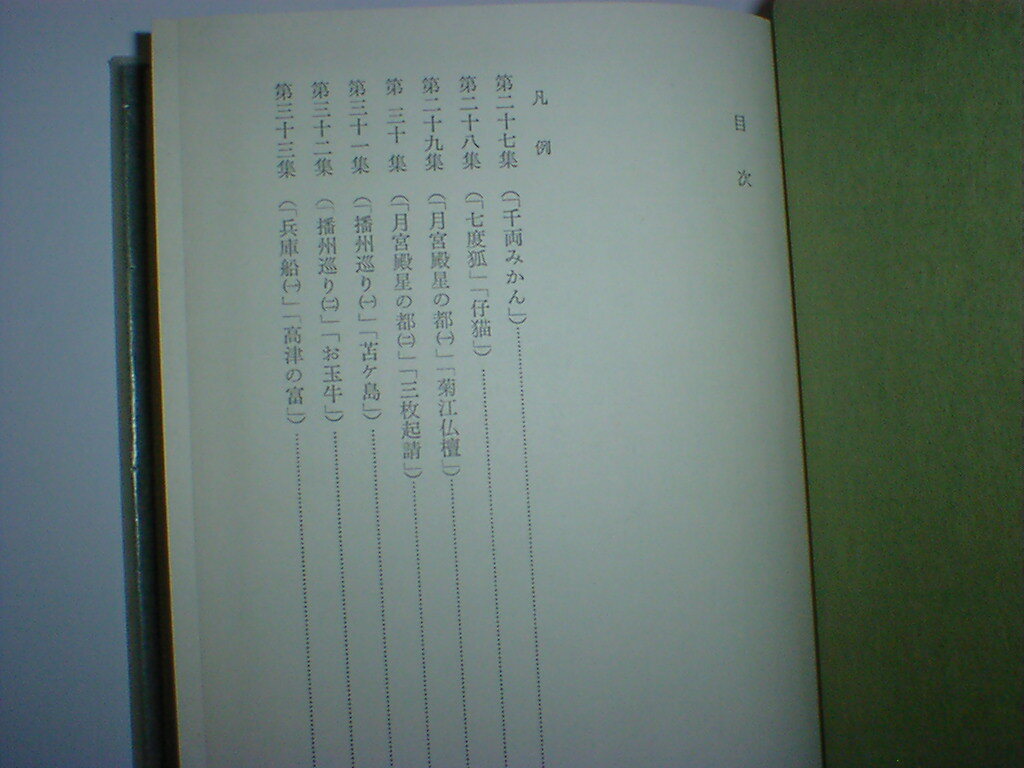 目次
凡例
第二十七集（「千両みかん」）
第二十八集（「七度狐」「仔猫」）
第二十九集（「月宮殿星の都㈠」「菊江仏壇」）
第三十集（「月宮殿星の都㈡」「三枚起請」）
第三十一集（「播州巡り㈠」「苫ヶ島」）
第三十二集（「播州巡り㈡」「お玉牛」）
第三十三集（「兵庫船㈠」「高津の富」）